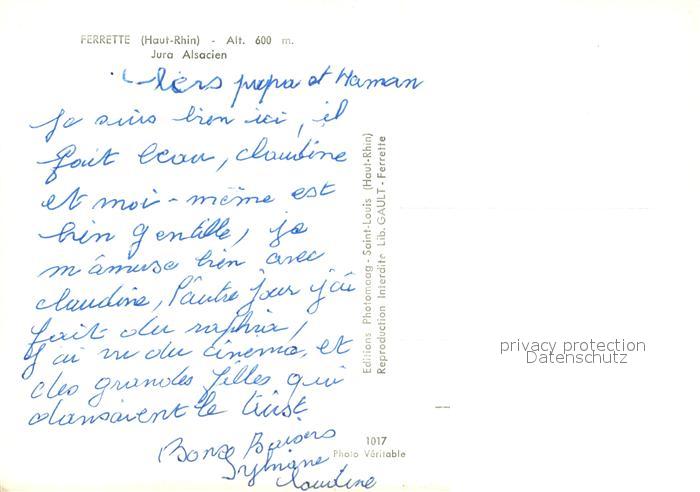 FERRETTE (Haut-Rhin) - Alt. 600 m.
Jura Alsacien
chers papa et Maman
Je suis bien ici, il
fait beau, claudine
et moi-même est
bien gentille, je
m'amuse bien avec
claudine, l'autre jour j'ai
fait du raphia,
j'ai vu du cinéma, et
des grandes filles qui
dansaient le twist
Bons Baisers
Sylviane
Claudine
Editions Photomaag - Saint-Louis (Haut-Rhin)
Reproduction Interdite Lib. GAULT - Ferrette
privacy protection
Datenschutz
1017
Photo Véritable